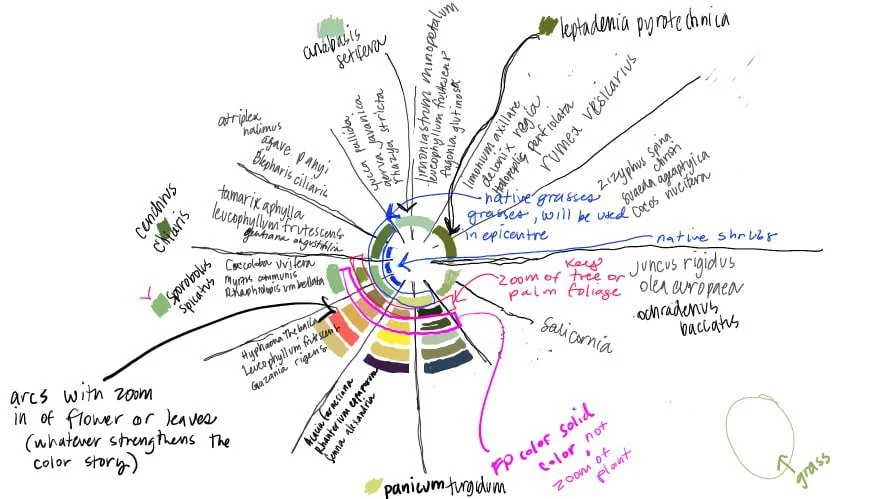 anabasis
setifera
leptadenia pyrotechnica
atriplex
halimus
agave parryi
Blepharis ciliaris
yucca pallida
aerva javanica
rhazya stricta
limoniastrum monopetalum
leucophyllum frutescens
fagonia glutinosa
limonium axillare
delonix regia
Halopeplis perfoliata
rumex vesicarius
zizyphus spina
christi
suaeda aegyptyica
Cocos nucifera
cenchrus
ciliaris
tamarix aphylla
leucophyllum frutescens
angustifolia
native grasses
grasses, will be used
in epicentre
native shrubs
Coccoloba uvifera
Myrtus communis
Rhaphiolepis umbellata
key
zoom of tree or
palm foliage
juncus rigidus
olea europaea
ochradenus
baccatus
sporobolus
spicatus
Salicornia
Hyphaena Thebaica
Leucophyllum frutescens
Gazania rigens
arcs with zoom
in of flower or leaves
(whatever strengthens the
color story)
Acacia farnesiana
Rhanterium epapposum
Senna alexandria
FP color solid
color, not
zoom of
plant
panicum turgidum
grass